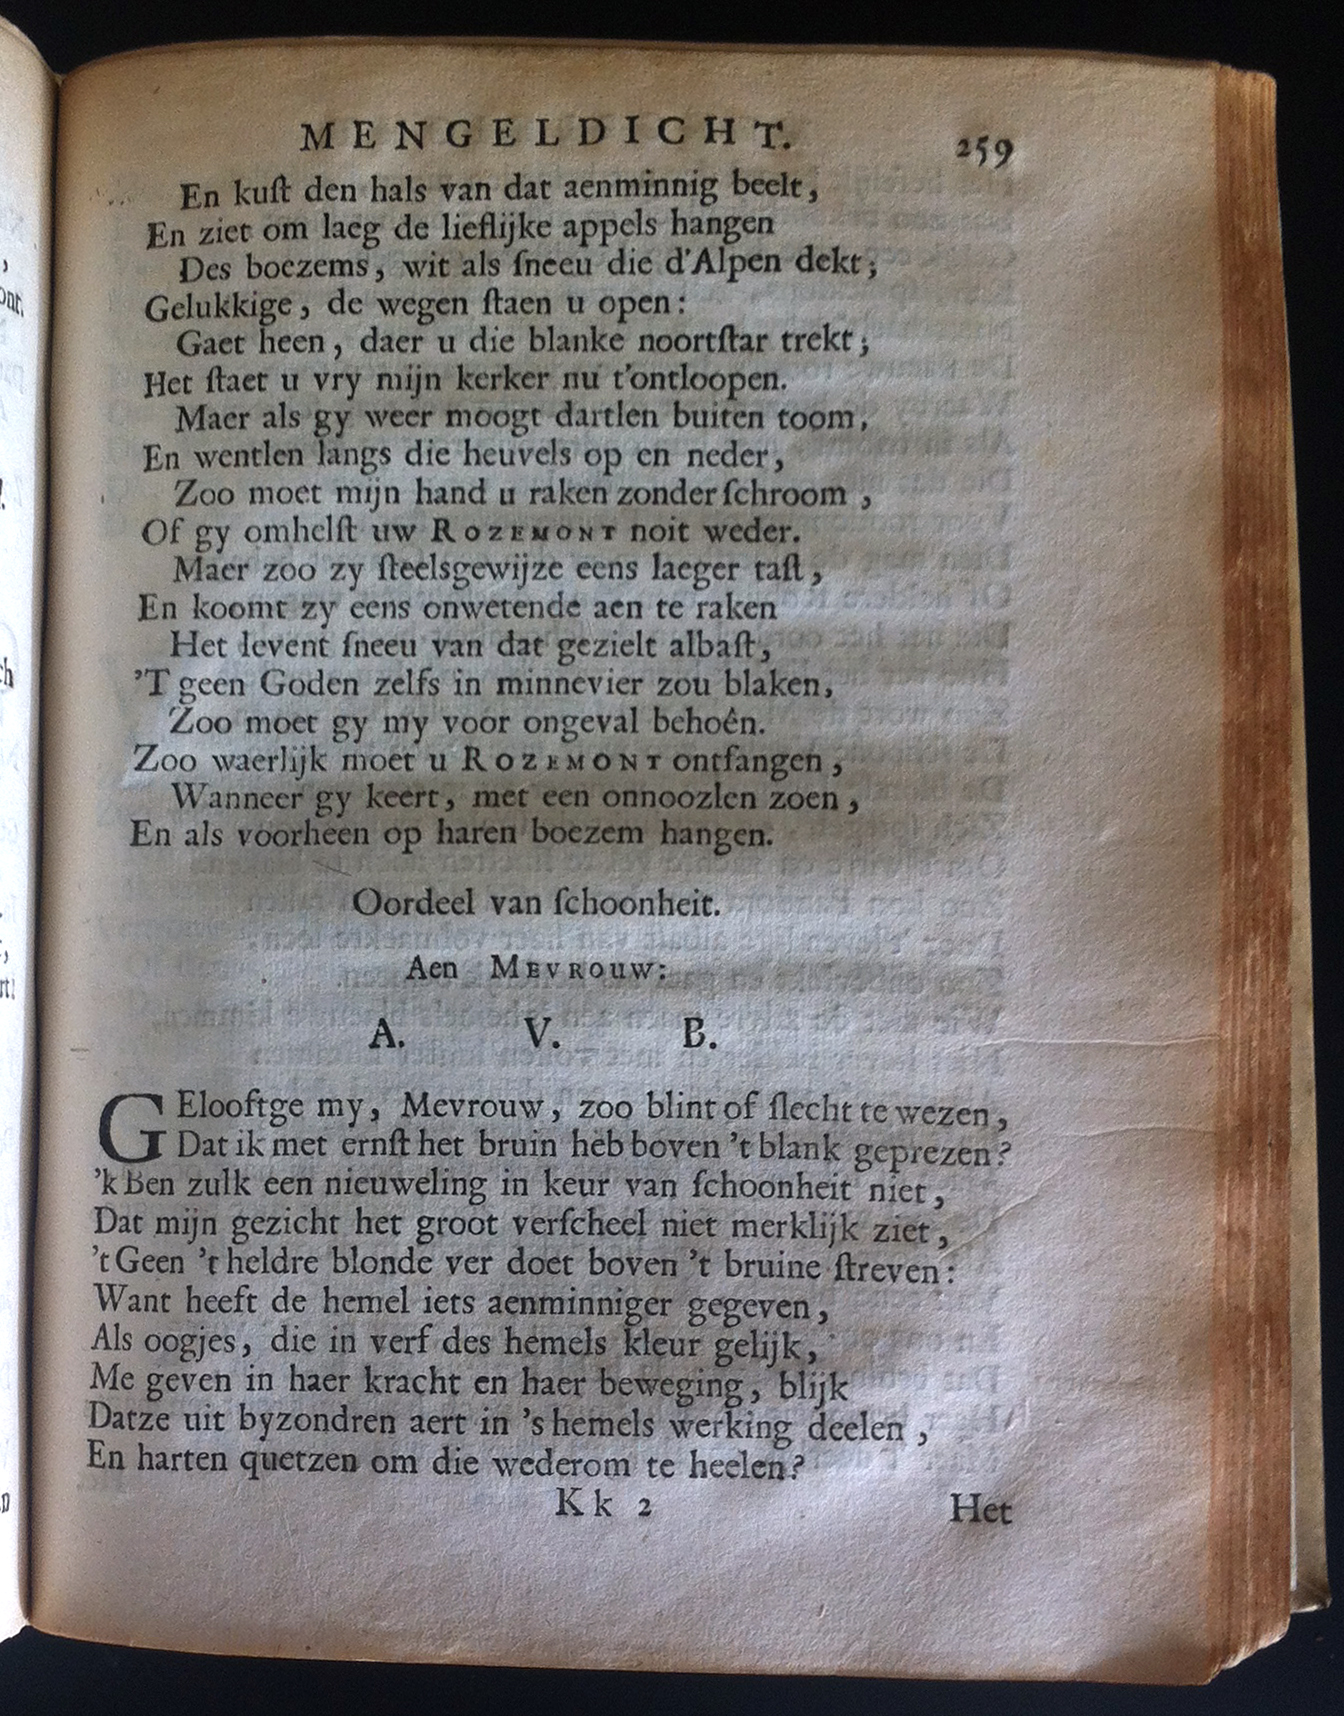 MENGELDICHT. 259
En kuſt den hals van dat aenminnig beelt,
En ziet om laeg de lieflijke appels hangen
Des boezems, wit als ſneeu die d'Alpen dekt;
Gelukkige, de wegen ſtaen u open:
Gaet heen, daer u die blanke noortſtar trekt;
Het ſtaet u vry mijn kerker nu t'ontloopen.
Maer als gy weer moogt dartlen buiten toom,
En wentlen langs die heuvels op en neder,
Zoo moet mijn hand u raken zonder ſchroom,
Of gy omhelſt uw ROZEMONT noit weder.
Maer zoo zy ſteelsgewijze eens laeger taſt,
En koomt zy eens onwetende aen te raken
Het levent ſneeu van dat gezielt albaſt,
'T geen Goden zelfs in minnevier zou blaken,
Zoo moet gy my voor ongeval behoên.
Zoo waerlijk moet u ROZEMONT ontfangen,
Wanneer gy keert, met een onnoozlen zoen,
En als voorheen op haren boezem hangen.
Oordeel van ſchoonheit.
Aen MEVROUW:
A. V. B.
GElooftge my, Mevrouw, zoo blint of ſlecht te wezen,
Dat ik met ernſt het bruin heb boven 't blank geprezen?
'k Ben zulk een nieuweling in keur van ſchoonheit niet,
Dat mijn gezicht het groot verſcheel niet merklijk ziet,
't Geen 't heldre blonde ver doet boven 't bruine ſtreven:
Want heeft de hemel iets aenminniger gegeven,
Als oogjes, die in verf des hemels kleur gelijk,
Me geven in haer kracht en haer beweging, blijk
Datze uit byzondren aert in 's hemels werking deelen,
En harten quetzen om die wederom te heelen?
Kk 2 Het